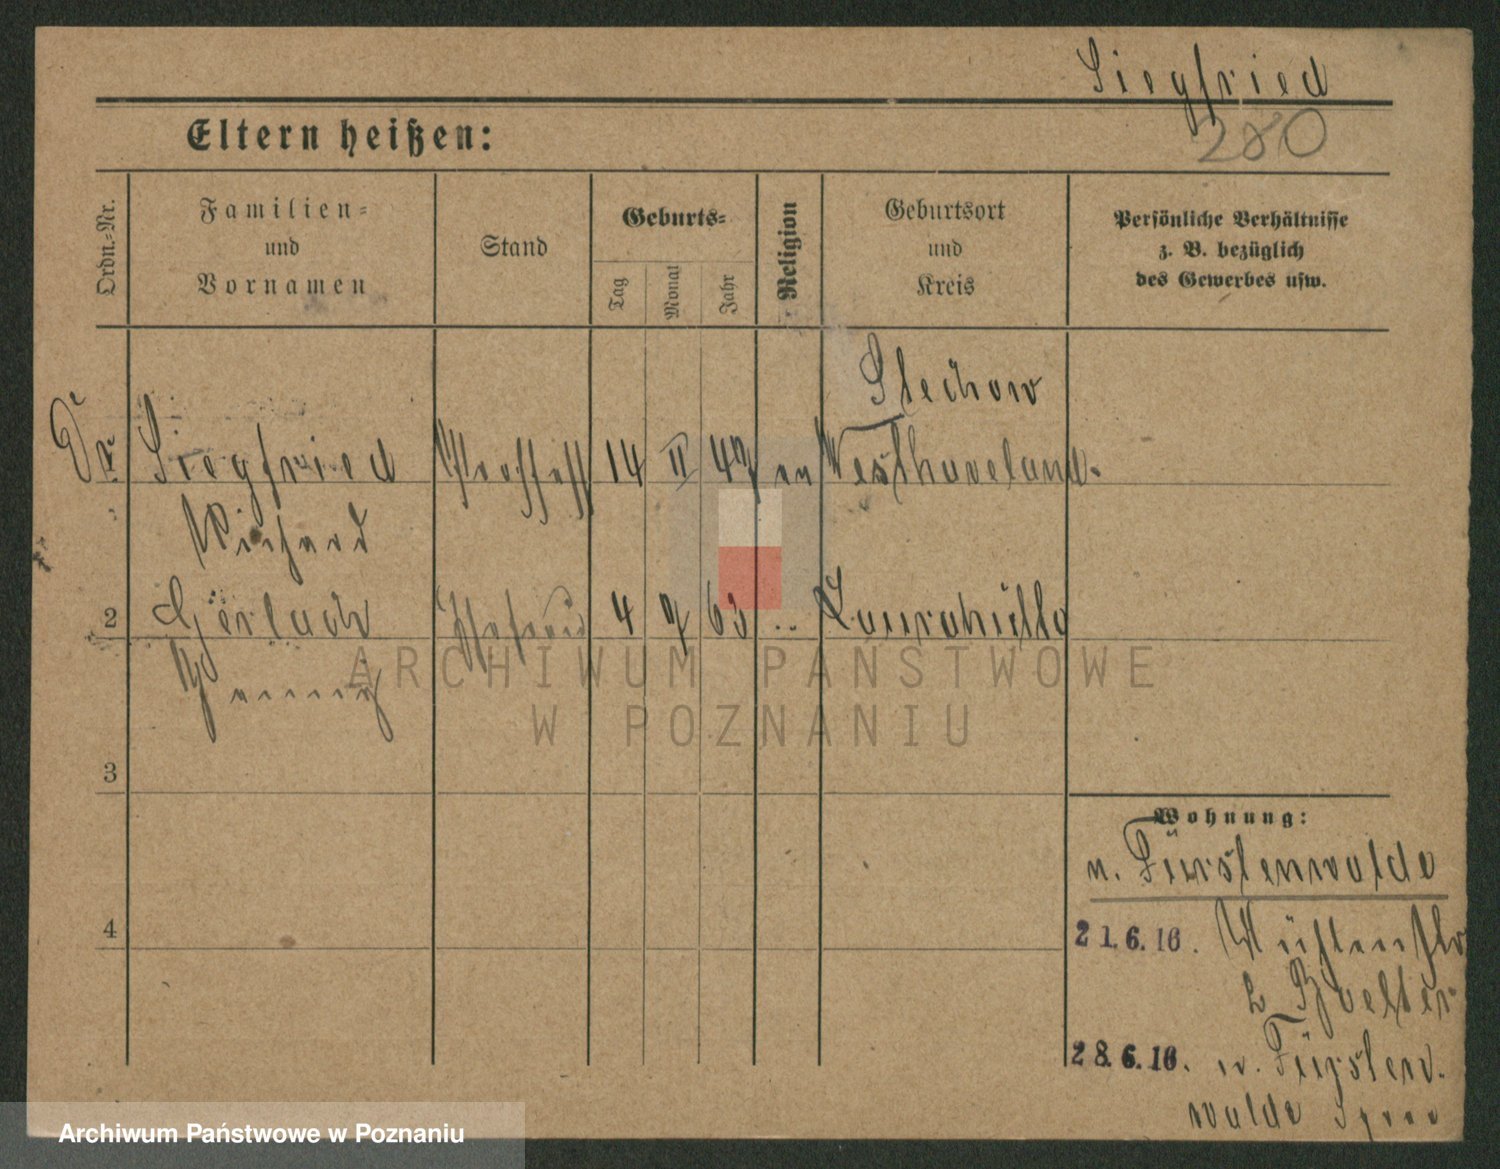 Siegfried
280
Eltern heißen:
Ordn.-Nr.
Familien-
und
Vornamen
Stand
Geburts-
Tag
Monat
Jahr
Religion
Geburtsort
und
Kreis
Persönliche Verhältnisse
z. B. bezüglich
des Gewerbes usw.
Stechow
Dr Siegfried 14 II 47 ev Westhaveland.
Richard
2 Gerlach Ehefrau 4 7 63 " Laurahütte
Jenny
3
4
Wohnung:
n. Fürstenwalde
21.6.16.
28.6.16. n. Fürsten-
walde Spree
ARCHIWUM PAŃSTWOWE
W POZNANIU
Archiwum Państwowe w Poznaniu